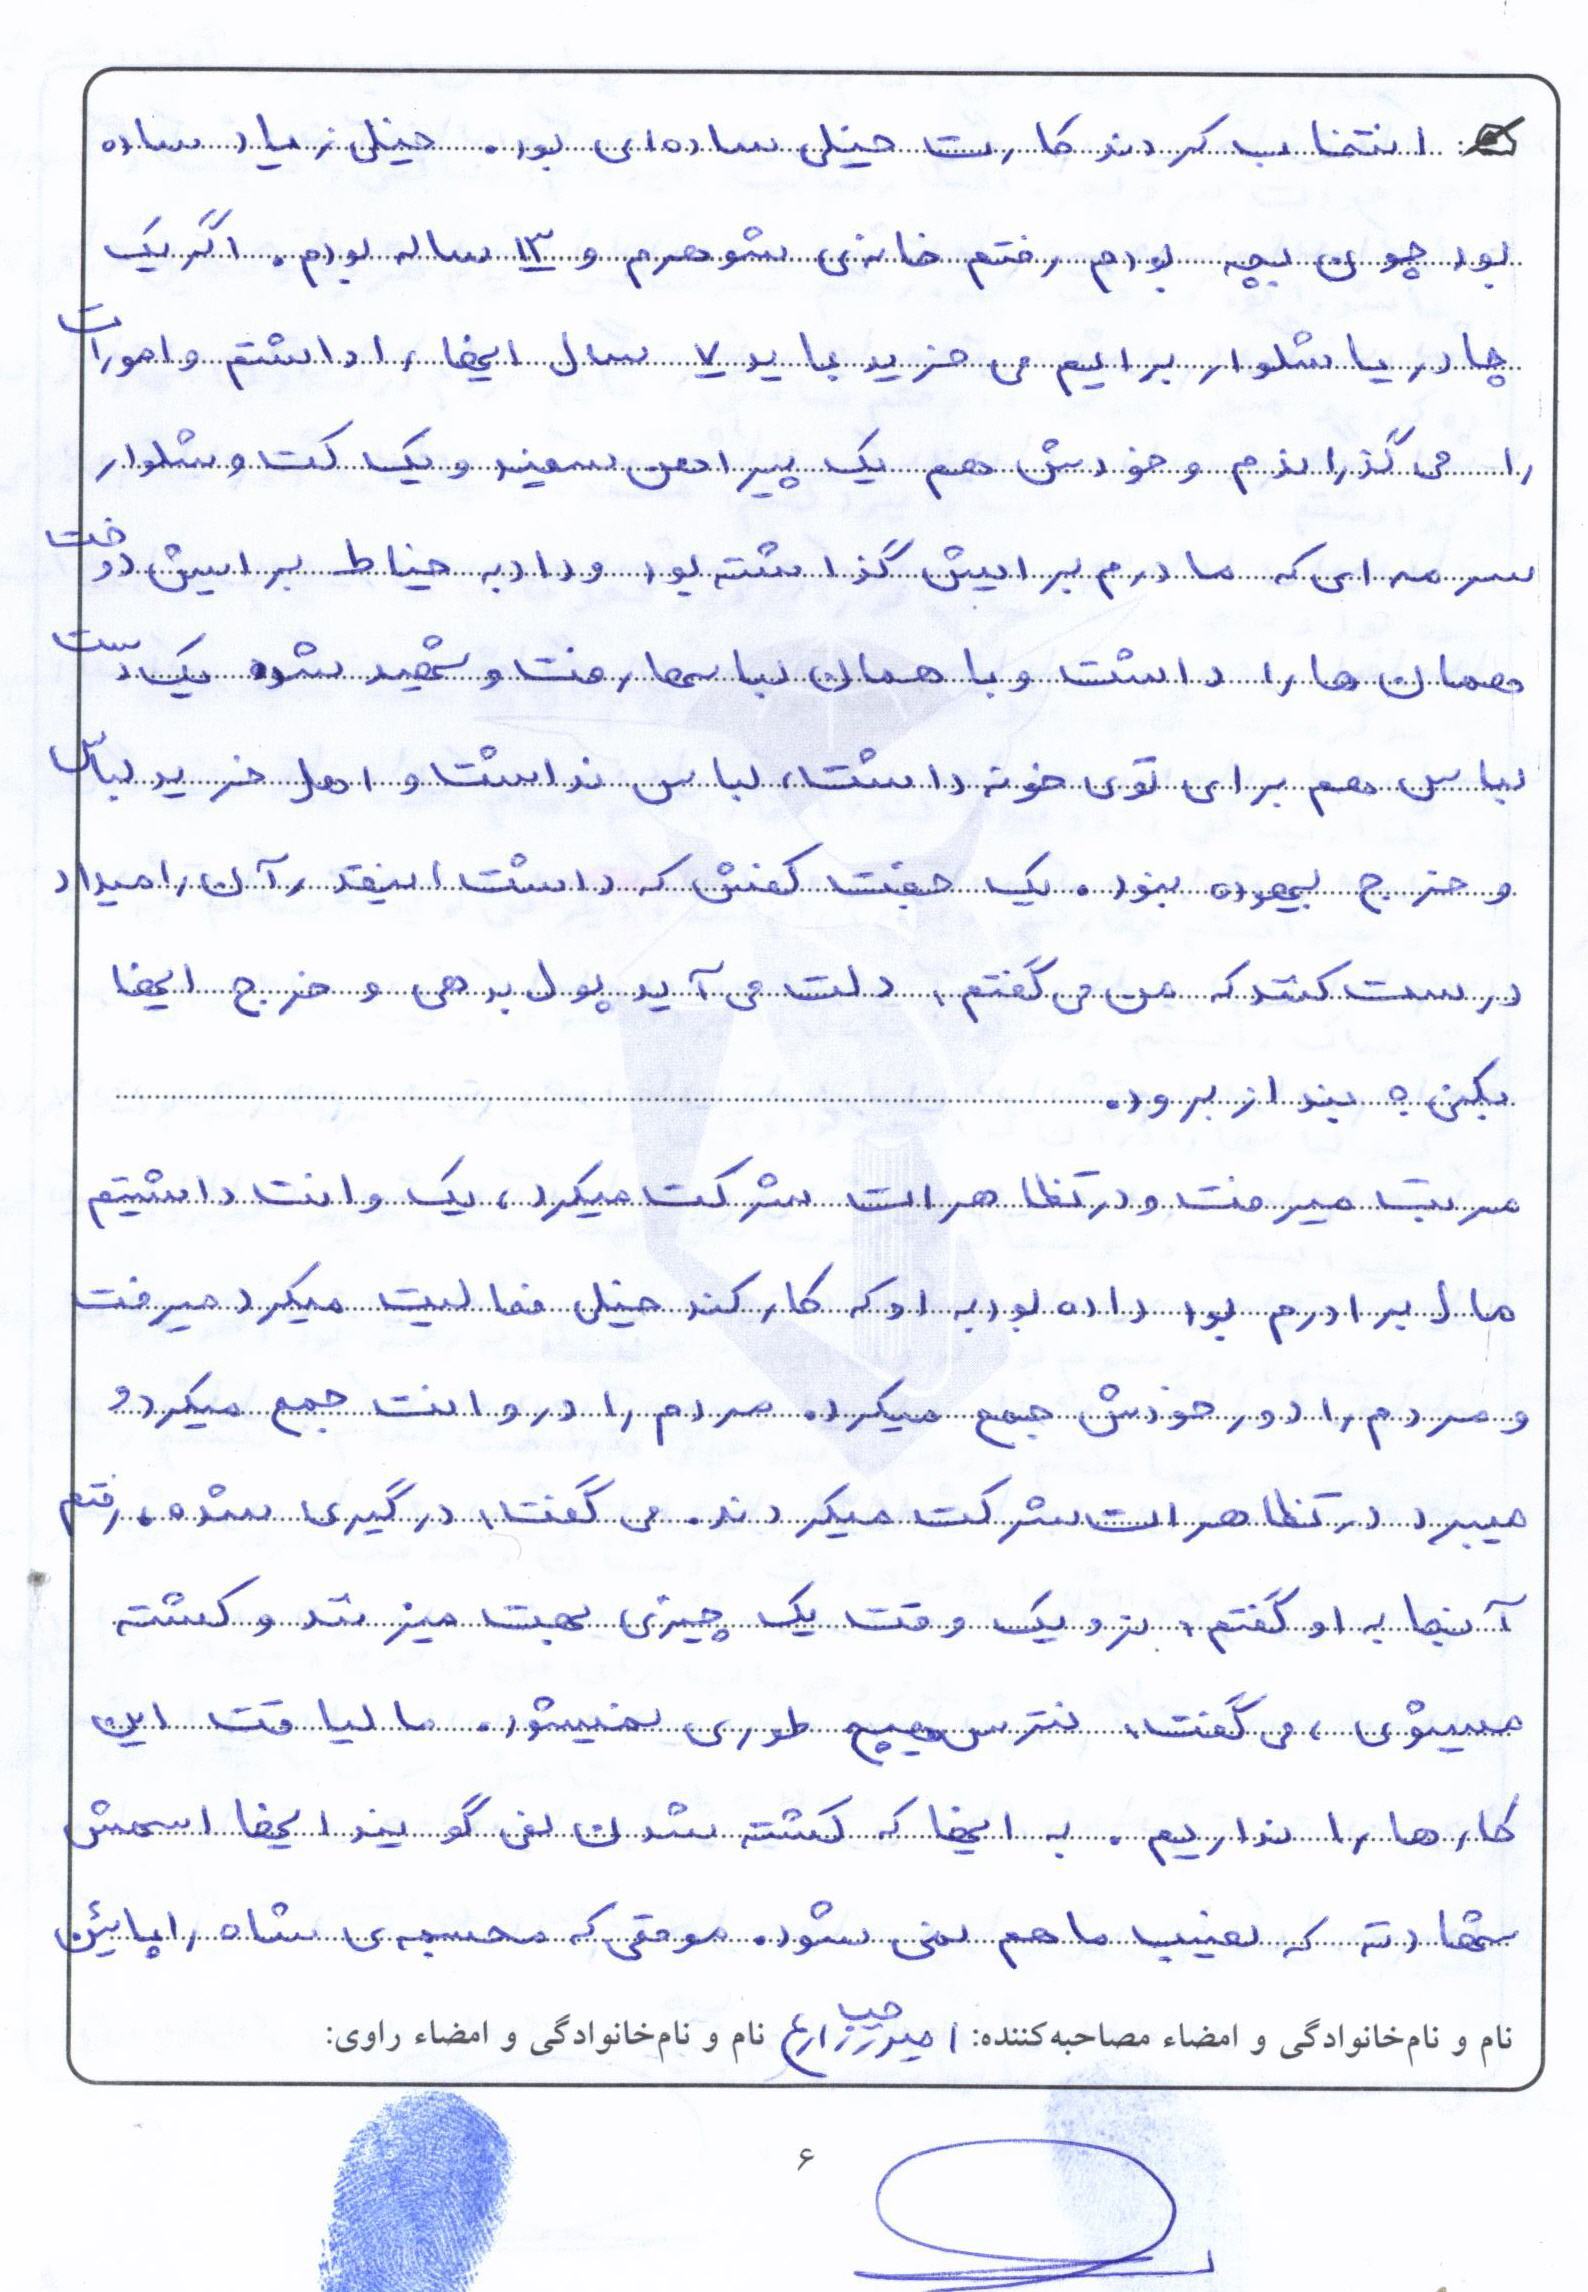 انتخاب کردند کارت خیلی ساده‌ای بود. خیلی زیاد ساده
بود چون بچه بودم رفتم خانه‌ی شوهرم و ۱۳ ساله بودم. اگر یک
چادر یا شلوار برایم می خرید باید ۷ سال اینها را داشتم و امورات
را می گذراندم و خودش هم یک پیراهن سفید و یک کت و شلوار
سرمه ای که مادرم برایش گذاشته بود و داد به خیاط برایش دوخت
همان ها را داشت و با همان لباسها رفت و شهید شد یک دست
لباس هم برای توی خونه داشت، لباس نداشت و اهل خرید لباس
و خرج بیهوده نبود. یک جفت کفش که داشت اینقدر آن را میداد
درست کنند که من می گفتم، دلت می آید پول بدهی و خرج اینها
بکنی؟ بنداز برود.
مرتب میرفت و در تظاهرات شرکت میکرد، یک وانت داشتیم
مال برادرم بود داده بود به او که کار کند خیلی فعالیت میکرد میرفت
و مردم را دور خودش جمع میکرد. مردم را در وانت جمع میکرد و
میبرد در تظاهرات شرکت میکردند. می گفت، درگیری شده، رفتم
آنجا به او گفتم، نرو یک وقت یک چیزی بهت میزنند و کشته
میشوی، می گفت، نترس هیچ طوری نمیشود. ما لیاقت این
کارها را نداریم. به اینها که کشته شدن نمی گویند اینها اسمش
شهادته که نصیب ما هم نمی شود. موقعی که مجسمه‌ی شاه را پایین
نام و نام‌خانوادگی و امضاء مصاحبه‌کننده: نام و نام‌خانوادگی و امضاء راوی:
۶